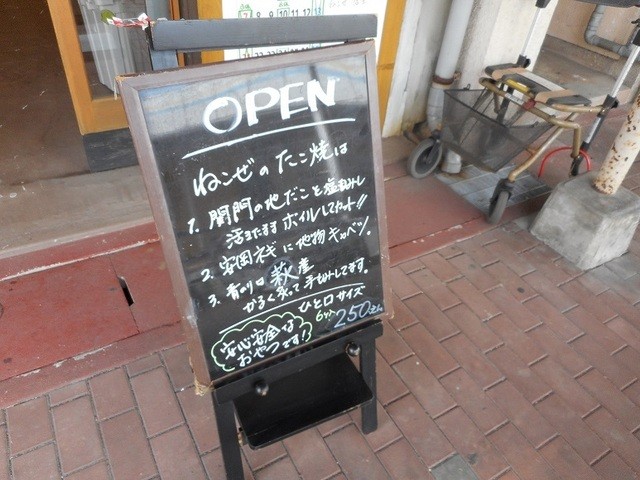 7 8 9 10 11 12 13
OPEN
ねこぜの たこ焼は
1. 関門の地だこを塩もみし
活きたまま ボイルしてカット!!
2. 安岡ネギに地物キャベツ。
3. 青のりは 萩産
かるく炙って 手もみしてます。
ひと口サイズ
6ケ入 250えん
安心安全な
おやつです!